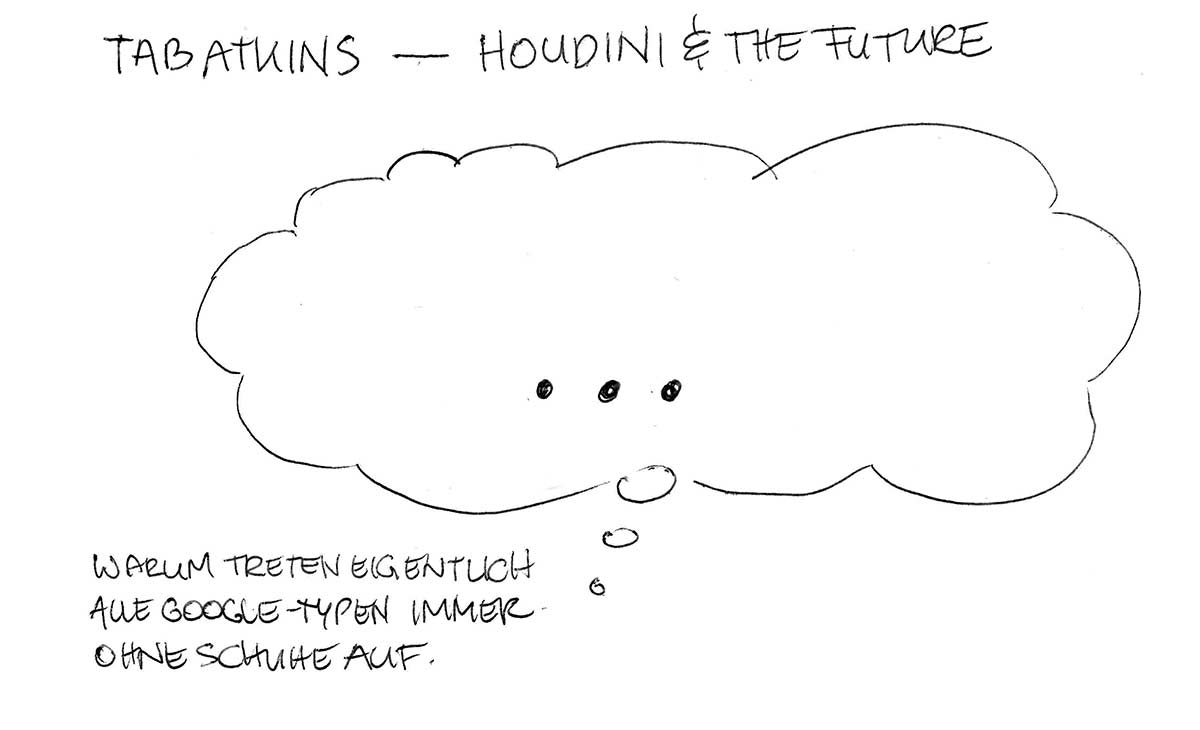 TAB ATKINS — HOUDINI & THE FUTURE
. . .
WARUM TRETEN EIGENTLICH
ALLE GOOGLE-TYPEN IMMER
OHNE SCHUHE AUF.